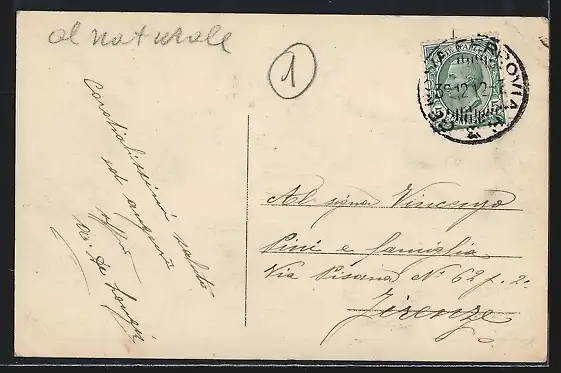 al naturale
1
Cordialissimi saluti
ed auguri
Al signor Vincenzo
Pini e famiglia
Via Pisana N° 62 p. 2°
Firenze
FERROVIA
12 12
5 5